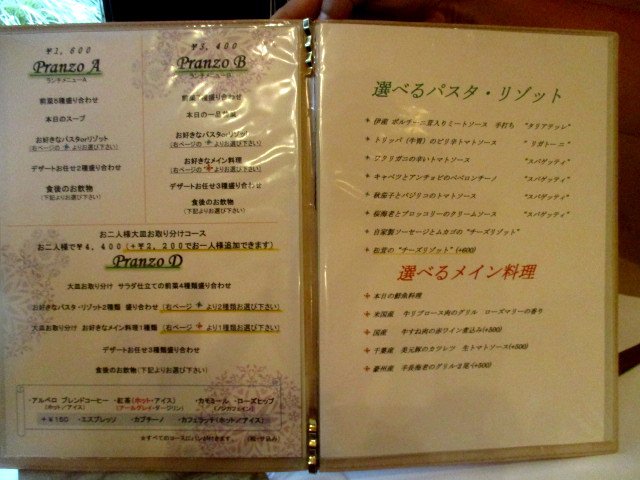 Pranzo A
ランチメニューA
前菜5種盛り合わせ
本日のスープ
お好きなパスタorリゾット
(右ページの よりお選び下さい)
デザートお任せ2種盛り合わせ
食後のお飲物
(下記よりお選び下さい)
¥3,400
Pranzo B
ランチメニューB
本日の一品前菜
お好きなパスタorリゾット
(右ページの よりお選び下さい)
お好きなメイン料理
(右ページの よりお選び下さい)
デザートお任せ3種盛り合わせ
食後のお飲物
(下記よりお選び下さい)
お二人様大皿お取り分けコース
お二人様で¥4,400(+¥2,200でお一人様追加できます)
Pranzo D
大皿お取り分け サラダ仕立ての前菜4種盛り合わせ
お好きなパスタ・リゾット2種類 盛り合わせ (右ページ より2種類お選び下さい)
大皿お取り分け お好きなメイン料理1種類 (右ページ より1種類お選び下さい)
デザートお任せ3種盛り合わせ
食後のお飲物(下記よりお選び下さい)
・アルベロ ブレンドコーヒー ・紅茶(ホット・アイス) ・カモミール ・ローズヒップ
(ホット/アイス) (アールグレイ・ダージリン) (ノンカフェイン)
+¥150 ・エスプレッソ ・カプチーノ ・カフェラッテ(ホット/アイス)
★すべてのコースにパンが付きます。 (税・サ込み)
選べるパスタ・リゾット
伊産 ポルチーニ茸入りミートソース 手打ち “タリアテッレ”
トリッパ(牛胃)のピリ辛トマトソース “リガトーニ”
ワタリガニの辛いトマトソース “スパゲッティ”
キャベツとアンチョビのペペロンチーノ “スパゲッティ”
秋茄子とバジリコのトマトソース “スパゲッティ”
桜海老とブロッコリーのクリームソース “スパゲッティ”
自家製ソーセージとムカゴの“チーズリゾット”
松茸の“チーズリゾット”(+600)
選べるメイン料理
本日の鮮魚料理
米国産 牛リブロース肉のグリル ローズマリーの香り
国産 牛すね肉の赤ワイン煮込み(+500)
千葉産 美元豚のカツレツ 生トマトソース(+500)
豪州産 手長海老のグリル・2尾(+500)